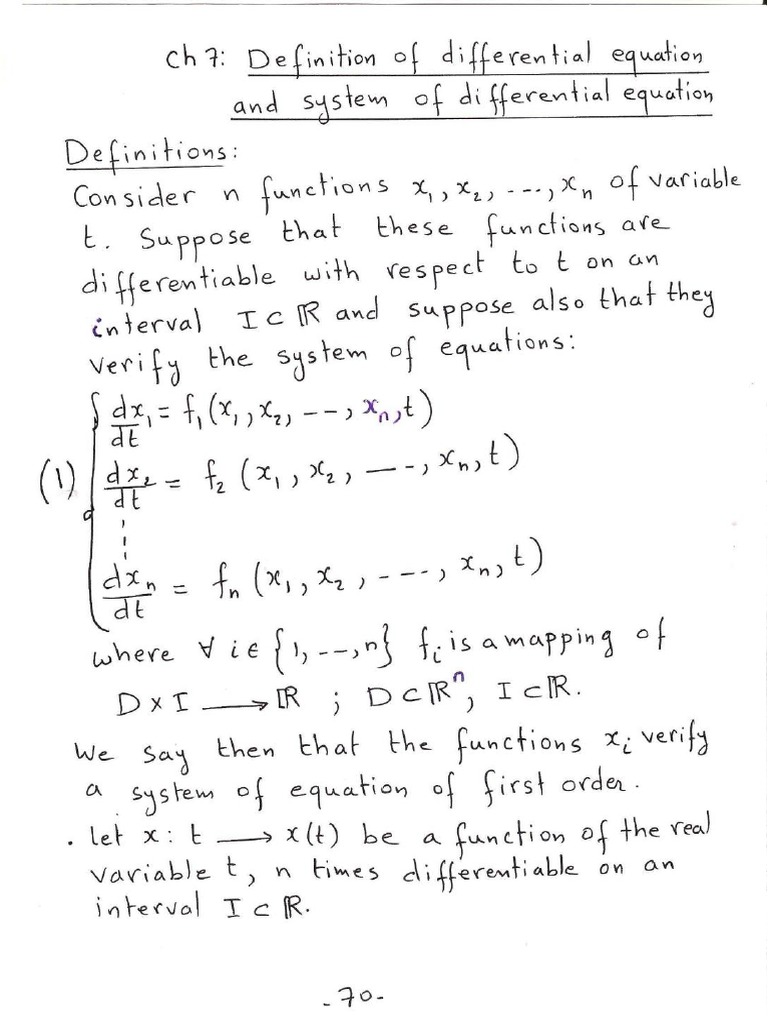 Ch 7: Definition of differential equation
and system of differential equation
Definitions:
Consider n functions x₁, x₂, ---, xₙ of variable
t. Suppose that these functions are
differentiable with respect to t on an
interval I ⊂ ℝ and suppose also that they
verify the system of equations:
dx₁/dt = f₁(x₁, x₂, --, xₙ, t)
(1) dx₂/dt = f₂ (x₁, x₂, --, xₙ, t)
dxₙ/dt = fₙ (x₁, x₂, ---, xₙ, t)
where ∀ i ∈ {1, --, n} fᵢ is a mapping of
D × I ⟶ ℝ ; D ⊂ ℝⁿ, I ⊂ ℝ.
We say then that the functions xᵢ verify
a system of equation of first order.
. let x : t ⟶ x(t) be a function of the real
variable t, n times differentiable on an
interval I ⊂ ℝ.
-70-